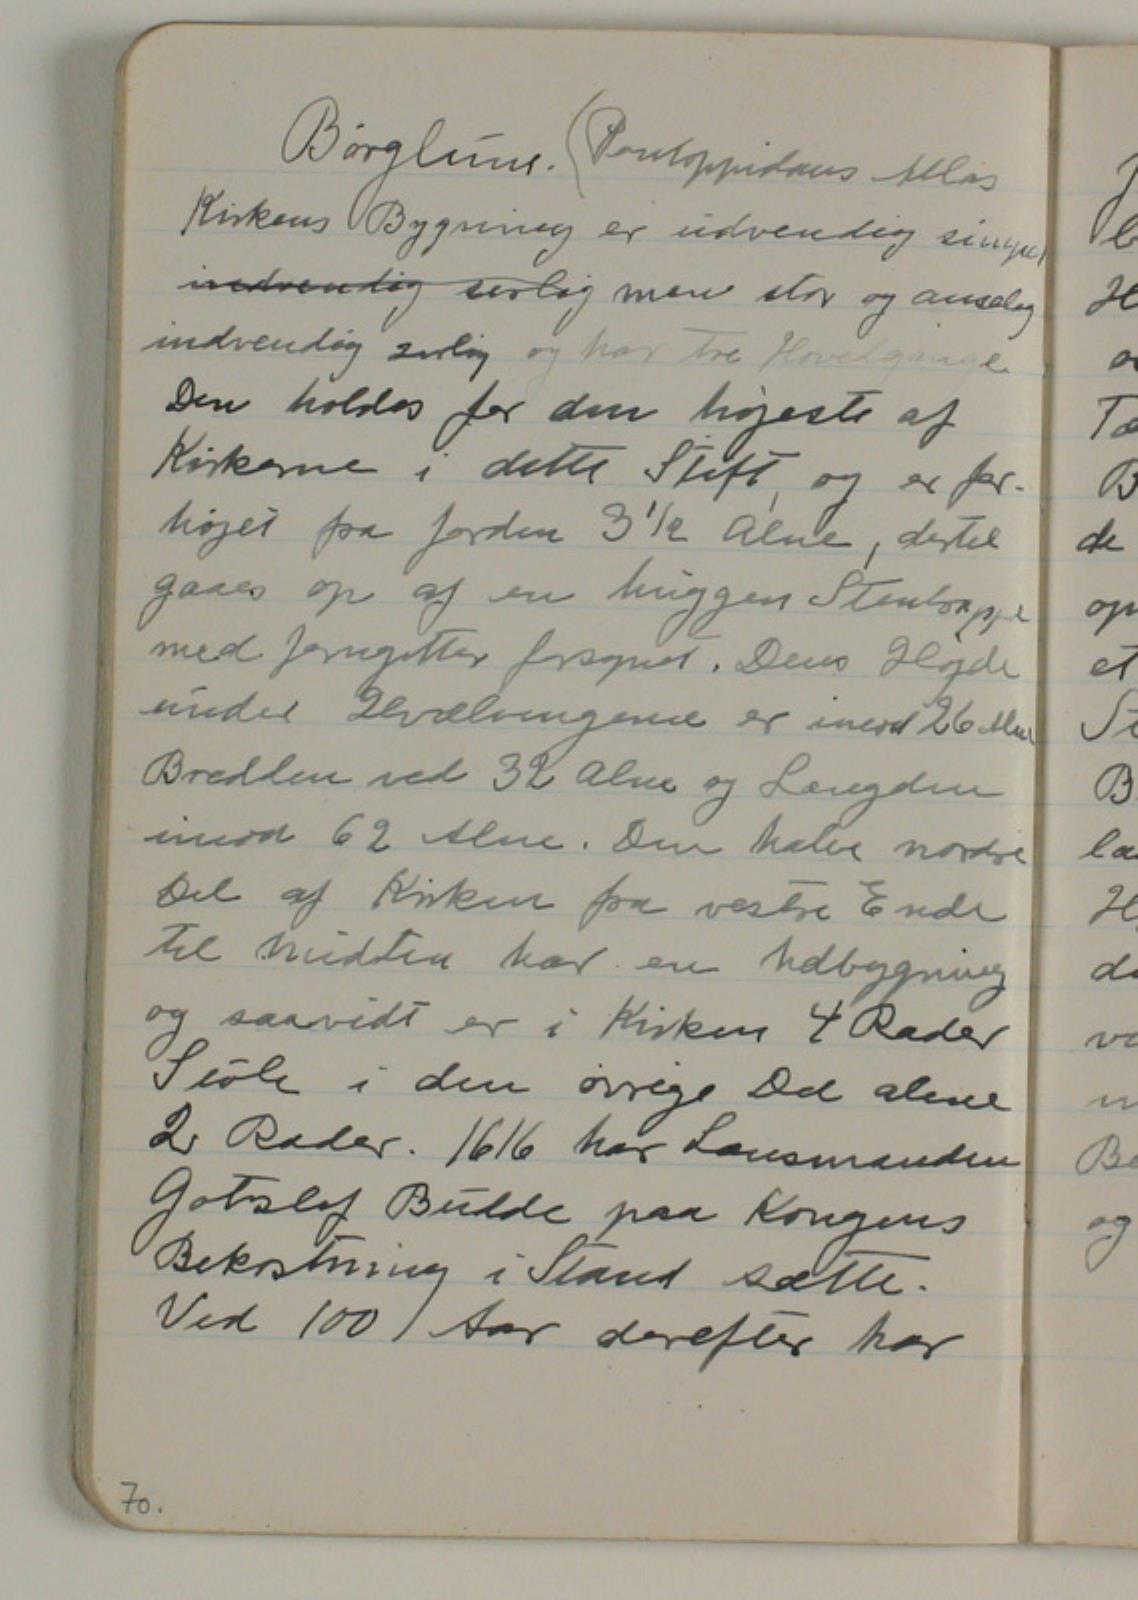 Børglum. (Pontoppidans Atlas
Kirkens Bygning er udvendig simpel
indvendig sirlig men stor og anselig
indvendig sirlig og har tre Hovedgange
Den holdes for den højeste af
Kirkerne i dette Stift, og er for-
højet fra Jorden 3 1/2 Alne, dertil
gaaes op af en huggen Stentrappe
med Jerngitter forsynet. Dens Højde
under Hvælvingerne er imod 26 Alne
Bredden ved 32 Alne og Længden
imod 62 Alne. Den halve nordre
Del af Kirken fra vestre Ende
til Midten har en Udbygning
og saavidt er i Kirken 4 Rader
Stole i den øvrige Del alene
2 Rader. 1616 har Lensmanden
Gotslaf Budde paa Kongens
Bekostning i Stand sætte.
Ved 100 Aar derefter har
70.